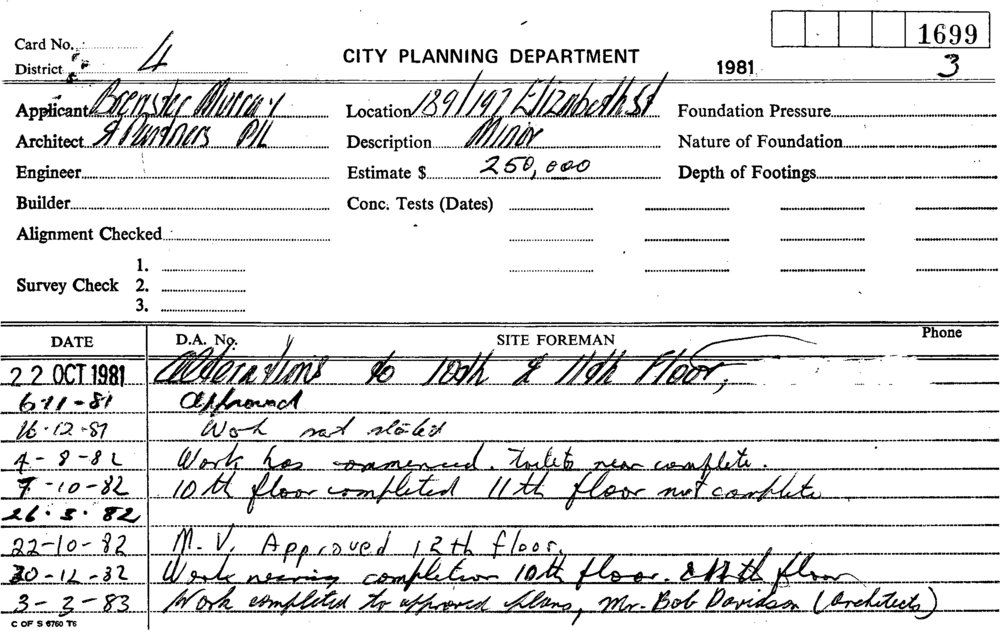 1699
Card No. 4
District
CITY PLANNING DEPARTMENT
1981 3
Applicant Brewster Murray
Location 189/197 Elizabeth St
Foundation Pressure
Architect & Partners P/L
Description Minor
Nature of Foundation
Engineer
Estimate $ 250,000
Depth of Footings
Builder
Conc. Tests (Dates)
Alignment Checked
1.
Survey Check 2.
3.
DATE D.A. No. SITE FOREMAN Phone
22 OCT 1981 Alterations to 10th & 11th Floor,
6-11-81 Approved
16-12-81 Work not started
4-8-82 Work has commenced. Toilets near complete.
7-10-82 10th floor completed 11th floor not complete
26.5.82
22-10-82 M.V. Approved 12th floor.
20-12-82 Work nearing completion 10th floor. & 11th floor
3-3-83 Work completed to approved plans, Mr. Bob Davidson (Architects)
C OF S 6760 T6